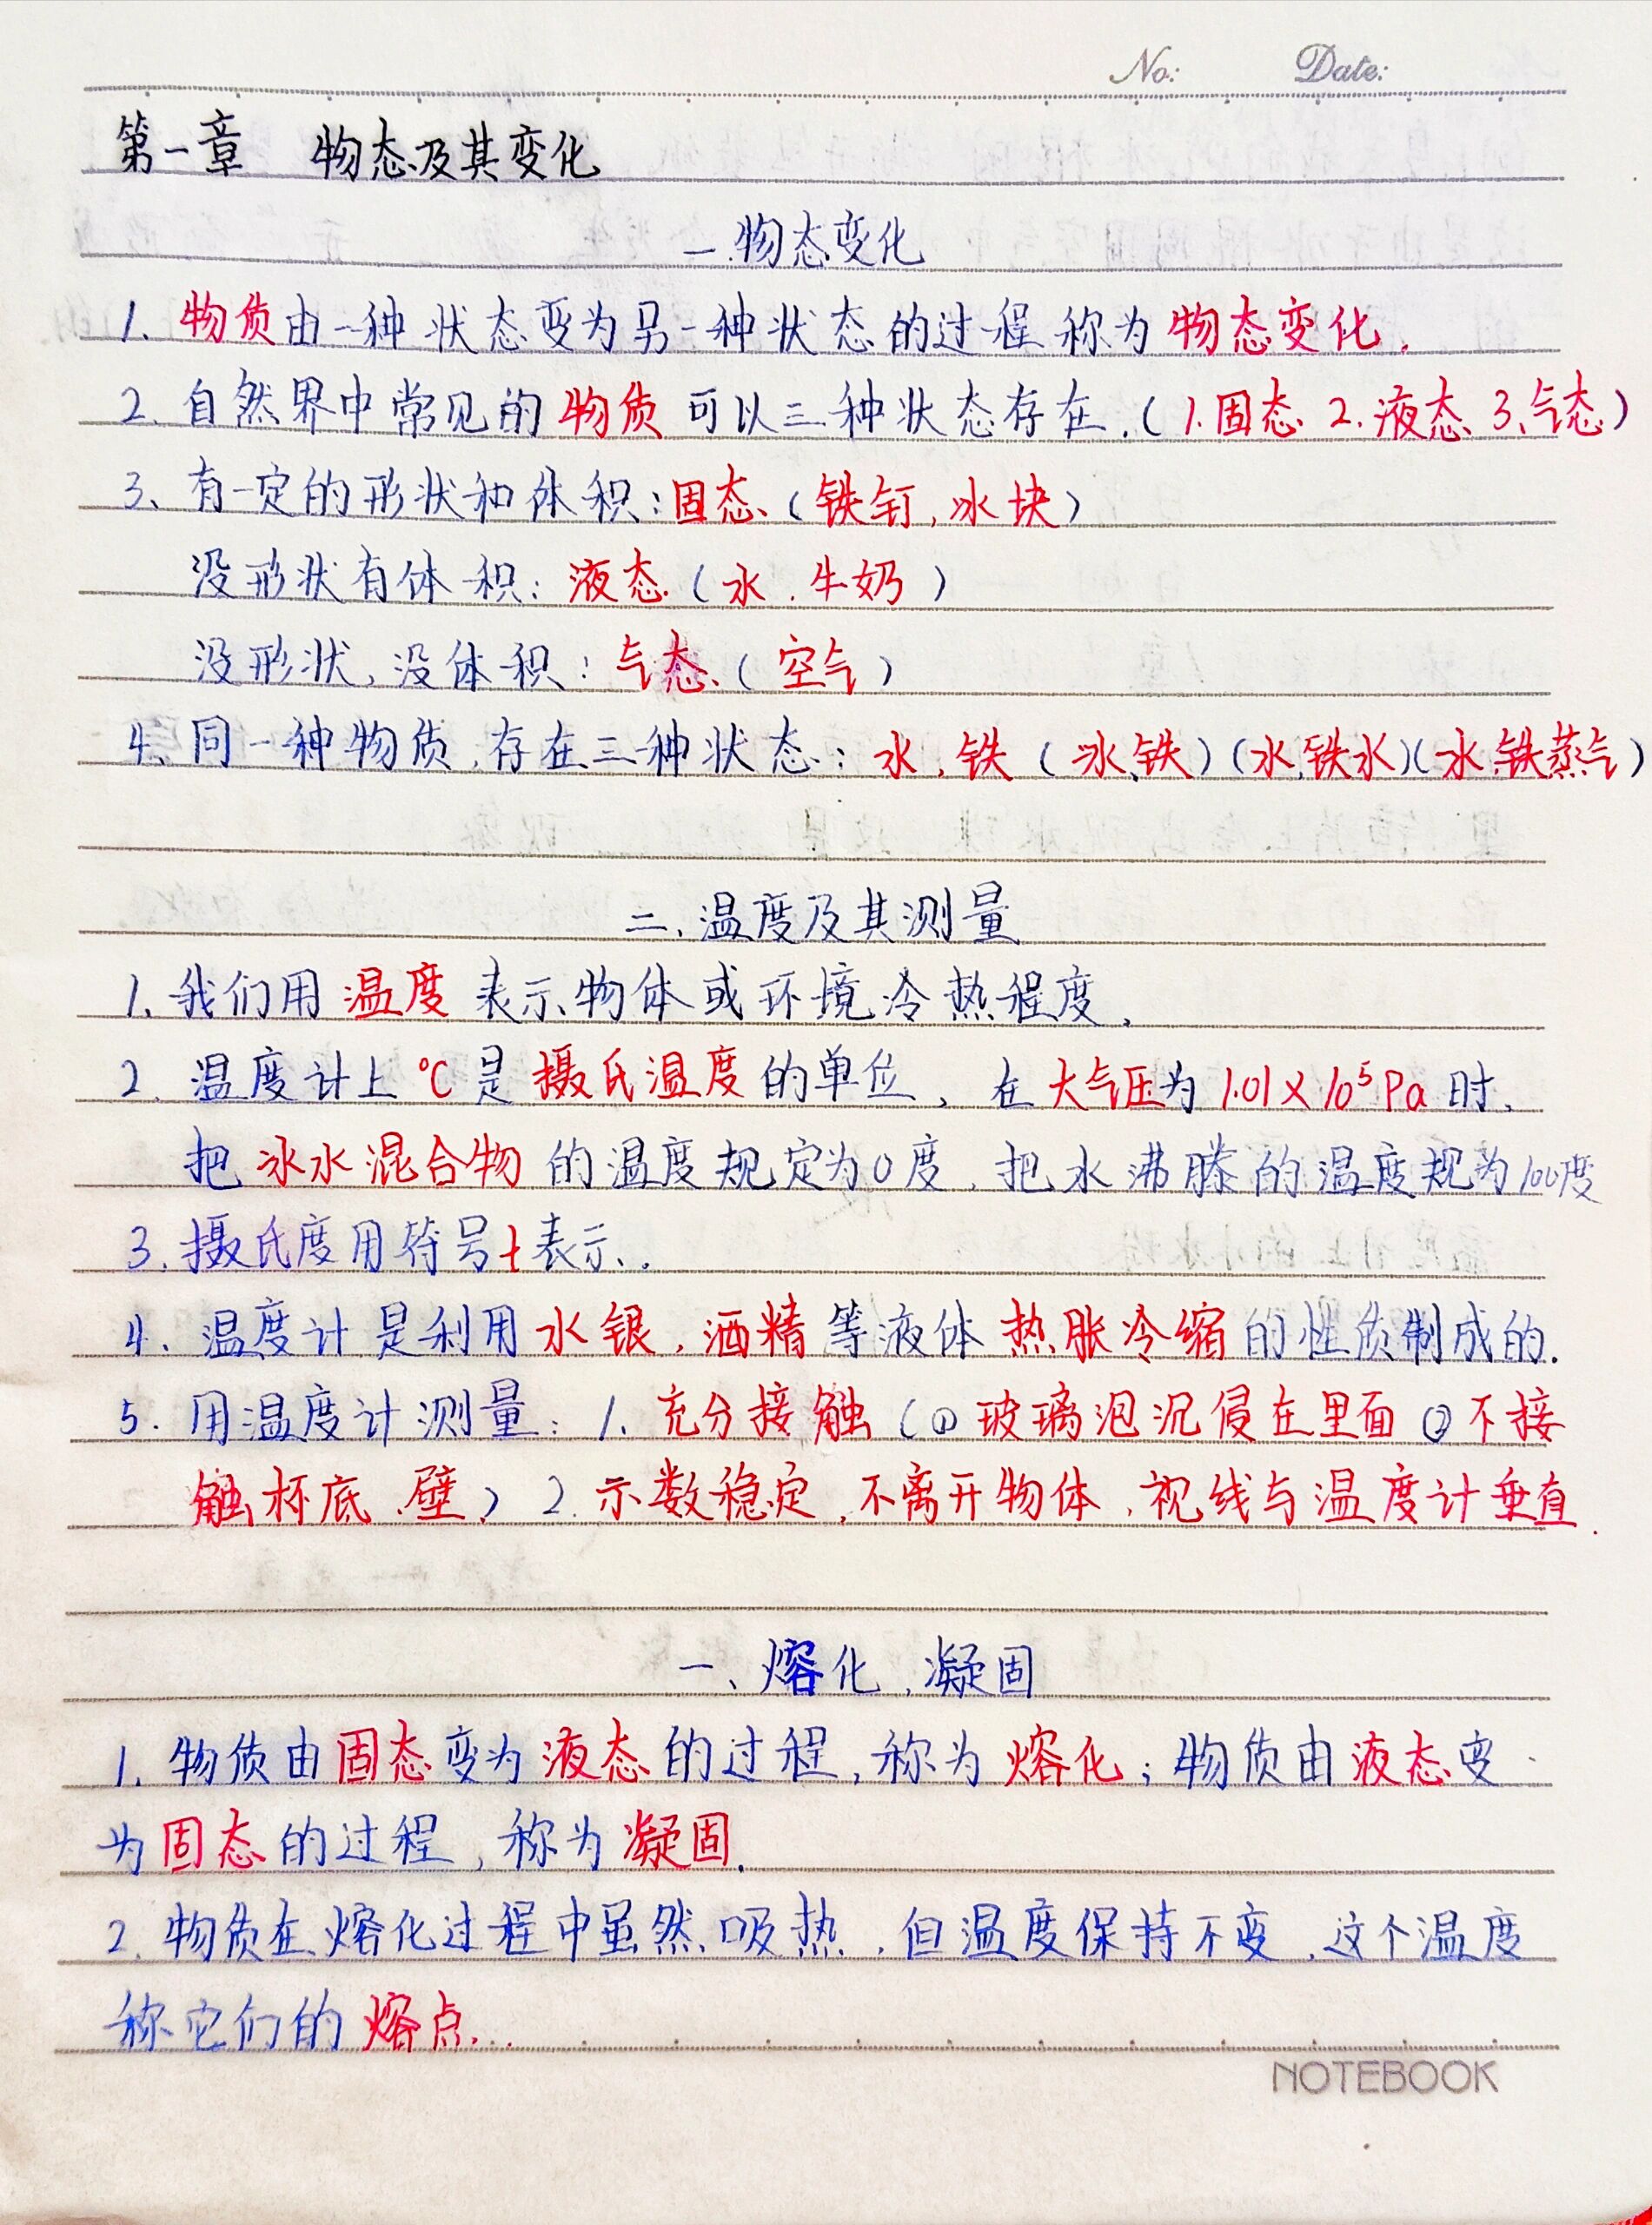 No: Date:
第一章 物态及其变化
一.物态变化
1、物质由一种状态变为另一种状态的过程称为物态变化.
2、自然界中常见的物质可以三种状态存在.(1.固态、2.液态、3、气态)
3、有一定的形状和体积:固态、(铁钉,冰块)
没形状有体积:液态.(水.牛奶)
没形状,没体积:气态、(空气)
4、同一种物质,存在三种状态:水,铁(冰、铁)(水,铁水)(水,铁蒸气)
二、温度及其测量
1、我们用温度表示物体或环境冷热程度,
2、温度计上℃是摄氏温度的单位,在大气压为1.01×10⁵Pa时,
把冰水混合物的温度规定为0度,把水沸腾的温度规为100度
3、摄氏度用符号t表示.
4、温度计是利用水银,酒精等液体热胀冷缩的性质制成的.
5.用温度计测量:1、充分接触(①玻璃泡沉侵在里面②不接
触杯底、壁)2.示数稳定,不离开物体,视线与温度计垂直.
一、熔化,凝固
1、物质由固态变为液态的过程,称为熔化;物质由液态变
为固态的过程,称为凝固.
2、物质在熔化过程中虽然吸热,但温度保持不变,这个温度
称它们的熔点...
NOTEBOOK